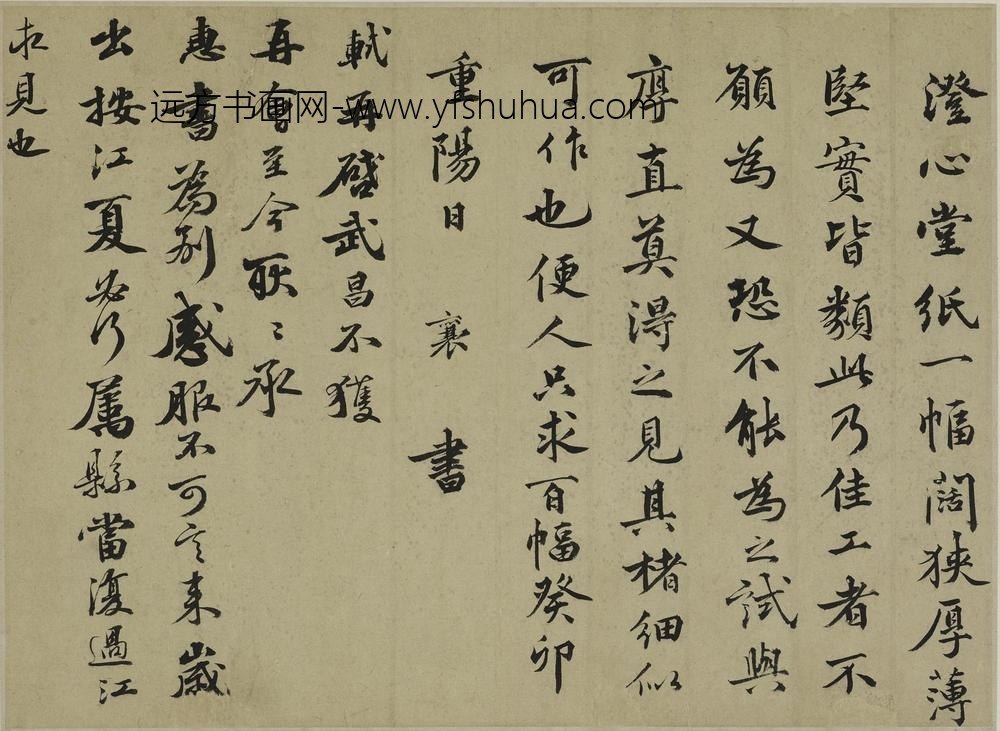 澄心堂紙一幅闊狹厚薄
堅實皆類此乃佳工者不
願為又恐不能為之試與
厚直莫得之見其楮細似
可作也便人只求百幅癸卯
重陽日 襄 書
軾再啓武昌不獲
再會至今耿〻承
惠書為別感服不可言來歲
出按江夏必行屬縣當復過江
求見也
远方书画网-www.yfshuhua.com